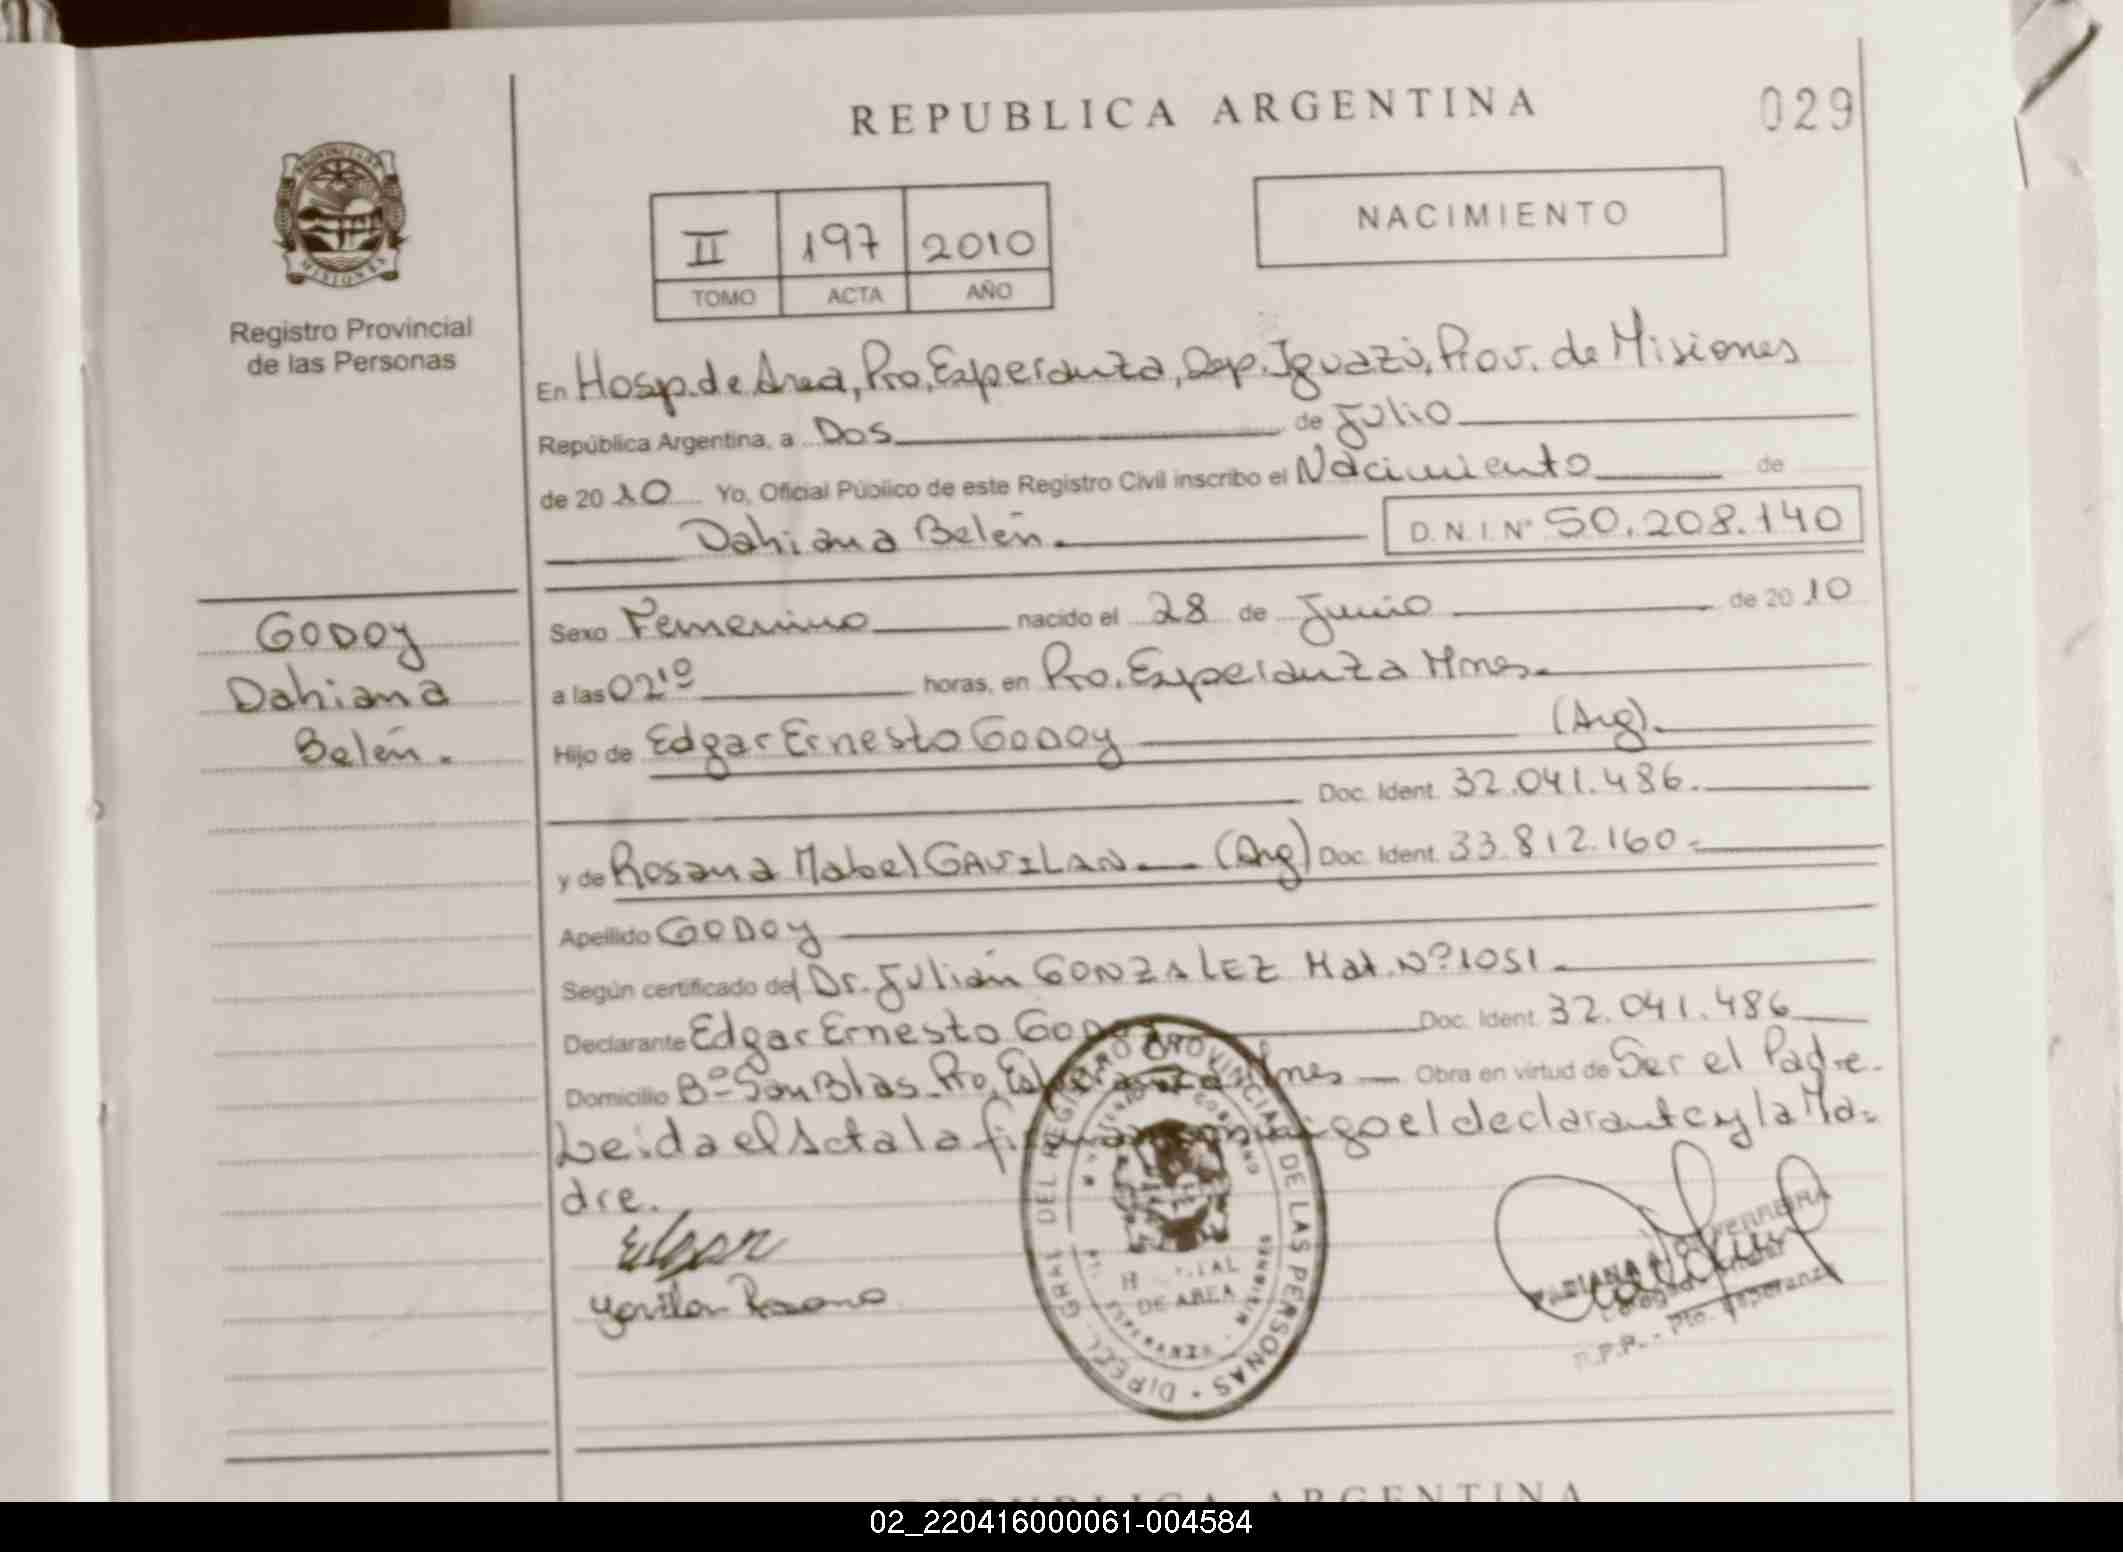 REPUBLICA ARGENTINA
029
PROVINCIA DE
MISIONES
Registro Provincial
de las Personas
II 197 2010
TOMO ACTA AÑO
NACIMIENTO
En Hosp. de Area, Pto. Esperanza, Dep. Iguazú, Prov. de Misiones
República Argentina, a Dos de Julio
de 2010 Yo, Oficial Público de este Registro Civil inscribo el Nacimiento de
Dahiana Belén. D.N.I. Nº 50.208.140
GODOY
Dahiana
Belén.
Sexo Femenino nacido el 28 de Junio de 2010
a las 02¹⁰ horas, en Pto. Esperanza Mnes.
Hijo de Edgar Ernesto GODOY (Arg).
Doc. Ident. 32.041.486.
y de Rosana Mabel GAVILAN. (Arg) Doc. Ident. 33.812.160.
Apellido GODOY
Según certificado del Dr. Julián GONZALEZ Mat. Nº 1051.
Declarante Edgar Ernesto GODOY Doc. Ident. 32.041.486
Domicilio Bº San Blas. Pto. Esperanza Mnes Obra en virtud de Ser el Padre.
Leida el Acta la firman conmigo el declarante y la Ma=
dre.
Edgar
Gavilan Rosana
DEL REGISTRO PROVINCIAL DE LAS PERSONAS
DE AREA
FERREIRA
R.P.P. - Pto. Esperanza
REPUBLICA ARGENTINA
02_220416000061-004584